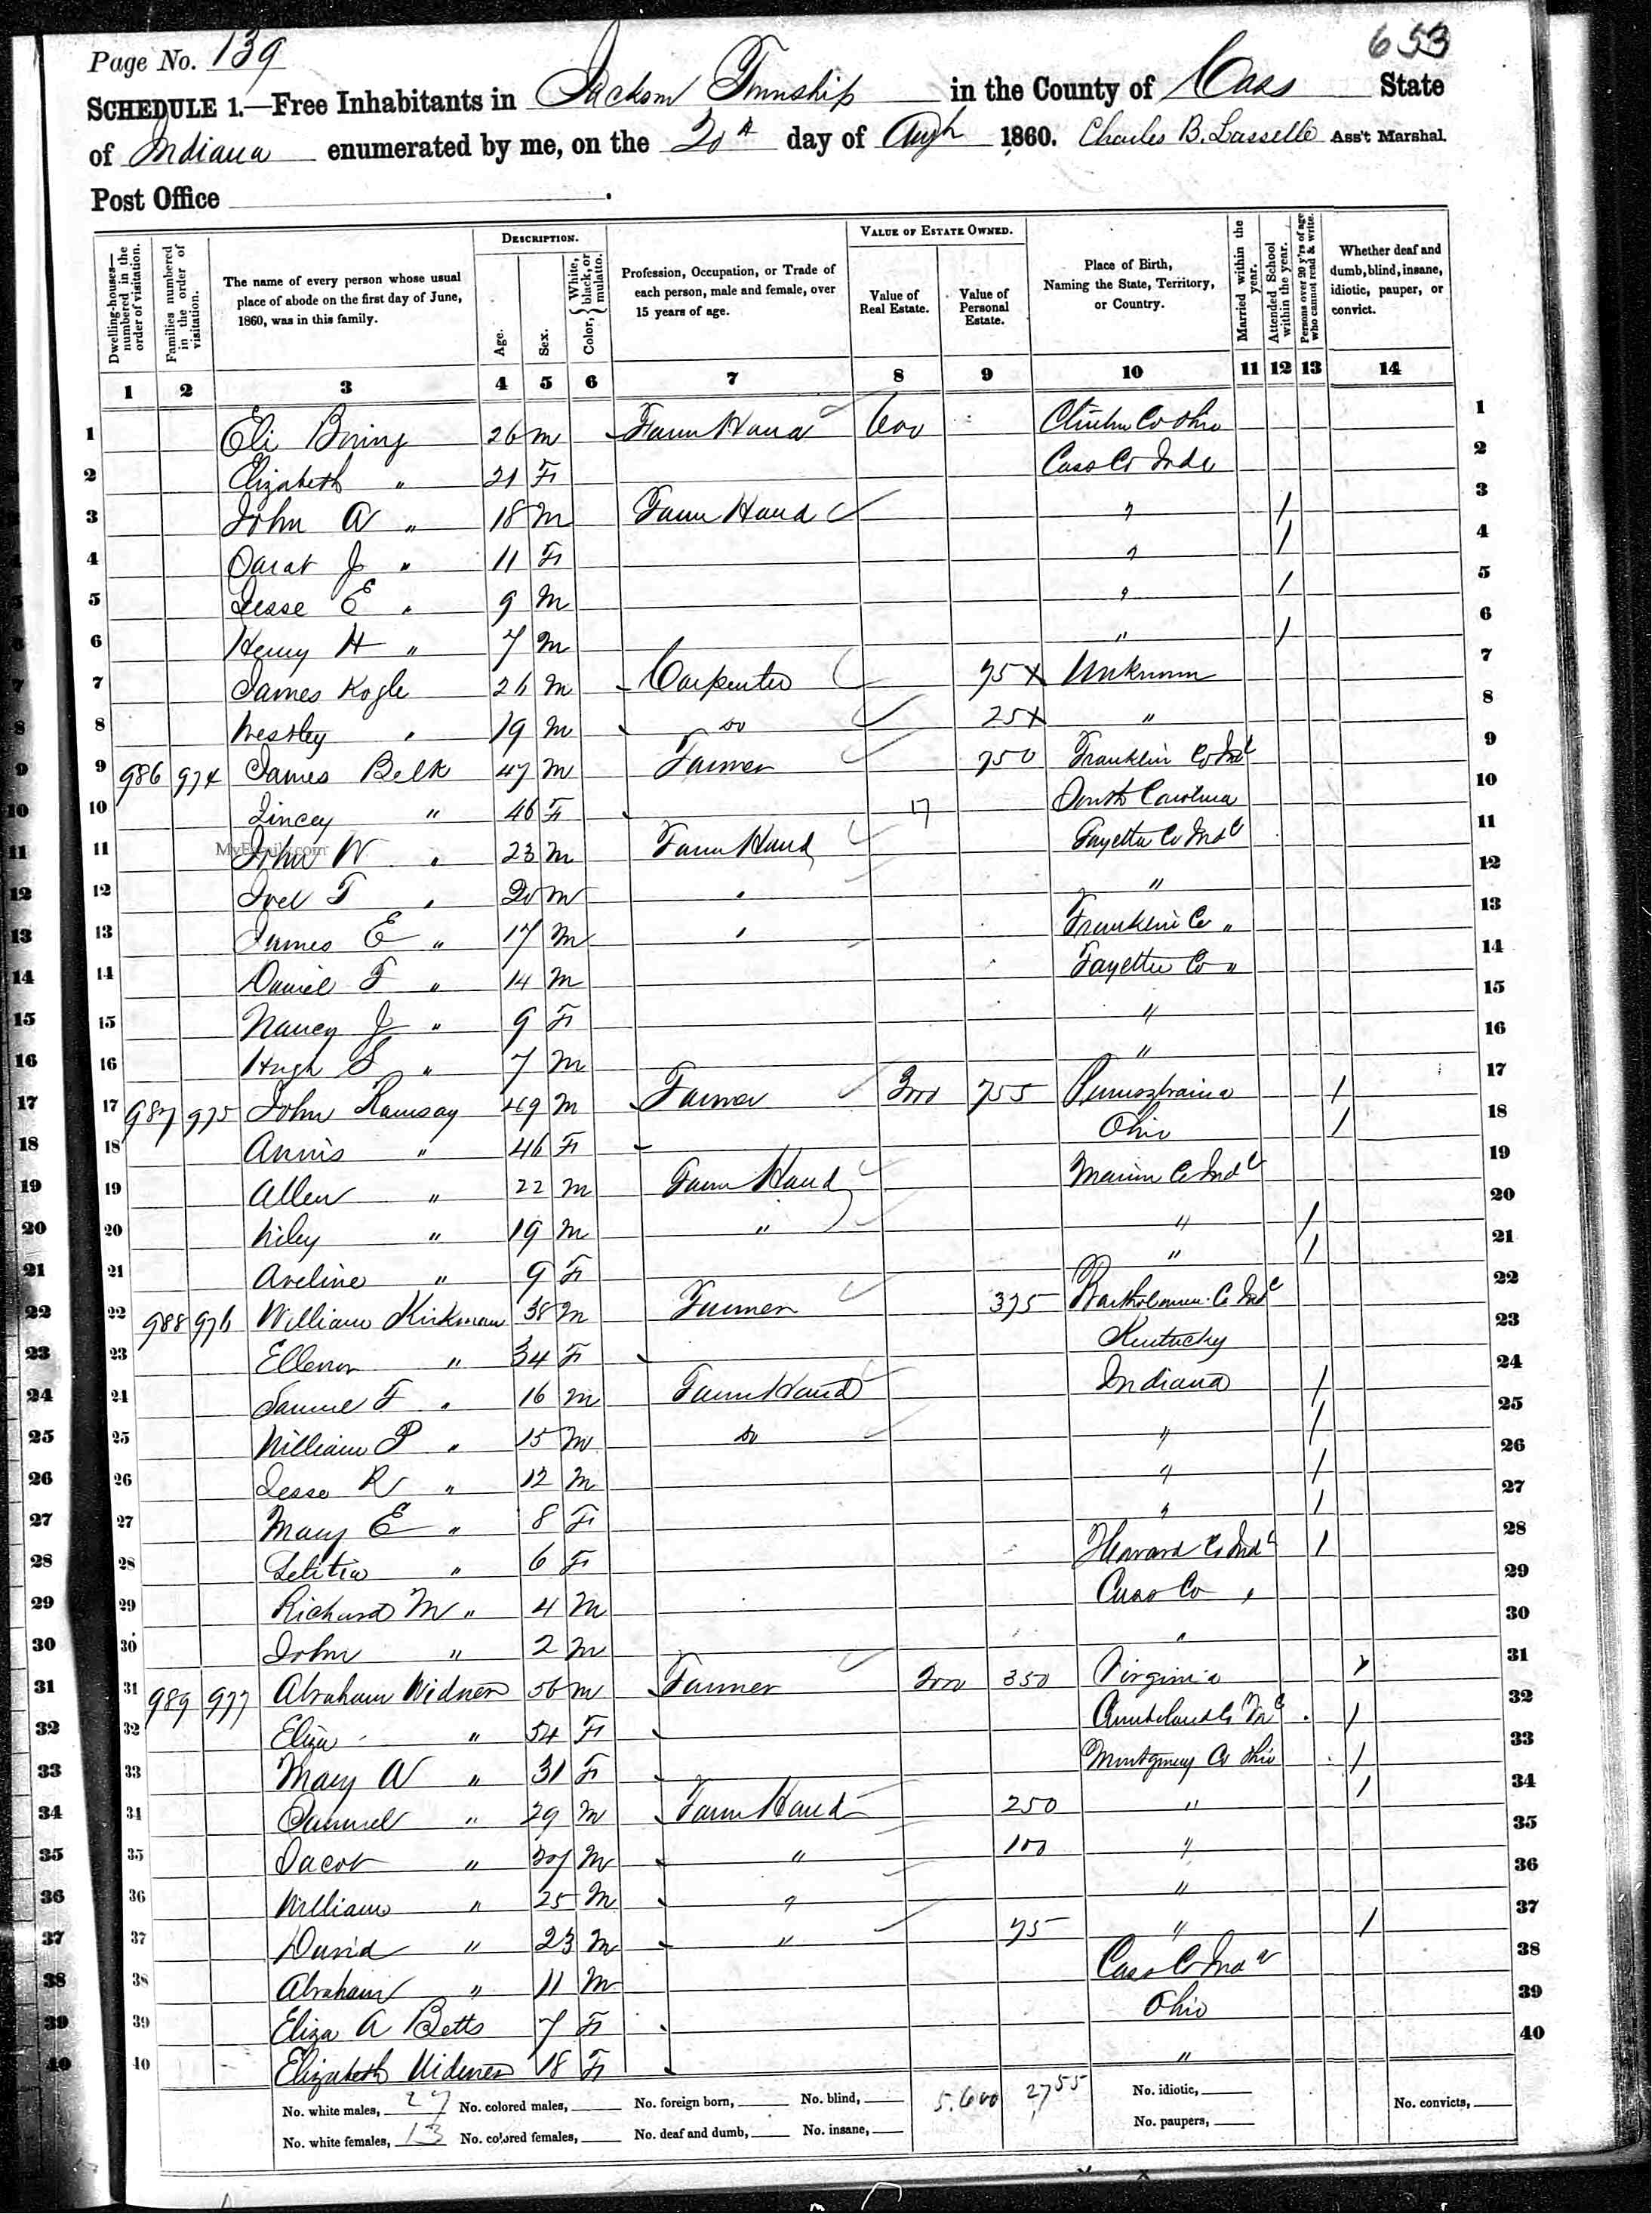 Page No. 139
653
SCHEDULE 1.—Free Inhabitants in Jackson Township in the County of Cass State
of Indiana enumerated by me, on the 20th day of Augt 1860. Charles B. Lasselle Ass't Marshal.
Post Office
Dwelling-houses—numbered in the order of visitation.
Families numbered in the order of visitation.
The name of every person whose usual place of abode on the first day of June, 1860, was in this family.
DESCRIPTION.
Age.
Sex.
Color, { White, black, or mulatto.
Profession, Occupation, or Trade of each person, male and female, over 15 years of age.
VALUE OF ESTATE OWNED.
Value of Real Estate.
Value of Personal Estate.
Place of Birth, Naming the State, Territory, or Country.
Married within the year.
Attended School within the year.
Persons over 20 y'rs of age who cannot read & write.
Whether deaf and dumb, blind, insane, idiotic, pauper, or convict.
1 2 3 4 5 6 7 8 9 10 11 12 13 14
1 Eli Boring 26 m Farm Hand 600 Clinton Co Ohio 1
2 Elizabeth " 21 F Cass Co Inda 2
3 John A " 18 m Farm Hand " / 3
4 Sarah J " 11 F " / 4
5 Jesse E " 9 m " / 5
6 Henry H " 7 m " / 6
7 James Kogle 26 m Carpenter 75 x Unknown 7
8 Westley " 19 m do 25 x " 8
9 986 974 James Belk 47 m Farmer 750 Franklin Co Ind 9
10 Lincey " 46 F South Carolina 10
MyFamily.com
11 John W " 23 m Farm Hand Fayette Co Ind 11
12 Joel T " 20 m " " 12
13 James E " 17 m " Franklin Co " 13
14 Daniel F " 14 m Fayette Co " 14
15 Nancy J " 9 F " 15
16 Hugh S " 7 m " 16
17 987 975 John Ramsay 49 m Farmer 755 Pennsylvania / 17
18 Annis " 46 F Ohio / 18
19 Allen " 22 m Farm Hand Marion Co Ind 19
20 Riley " 19 m " " / 20
21 Aveline " 9 F " / 21
22 988 976 William Kirkman 38 m Farmer 375 Bartholomew Co Ind 22
23 Ellenor " 34 F Kentucky 23
24 Samuel F " 16 m Farm Hand Indiana / 24
25 William P " 15 m do " / 25
26 Jesse R " 12 m " / 26
27 Mary E " 8 F " / 27
28 Letitia " 6 F Howard Co Ind / 28
29 Richard M " 4 m Cass Co " 29
30 John " 2 m " 30
31 989 977 Abraham Widner 56 m Farmer 350 Virginia 31
32 Eliza " 54 F / 32
33 Mary A " 31 F Montgomery Co Ohio / 33
34 Samuel " 29 m Farm Hand 250 " / 34
35 Jacob " m " 100 " 35
36 William " 25 m " " 36
37 David " 23 m " 75 " / 37
38 Abraham " 11 m Cass Co Ind 38
39 Eliza A Betts 7 F Ohio 39
40 Elizabeth Widener 18 F " 40
No. white males, 27 No. colored males, No. foreign born, No. blind, 5.600 2755 No. idiotic, No. convicts,
No. white females, 13 No. colored females, No. deaf and dumb, No. insane, No. paupers,